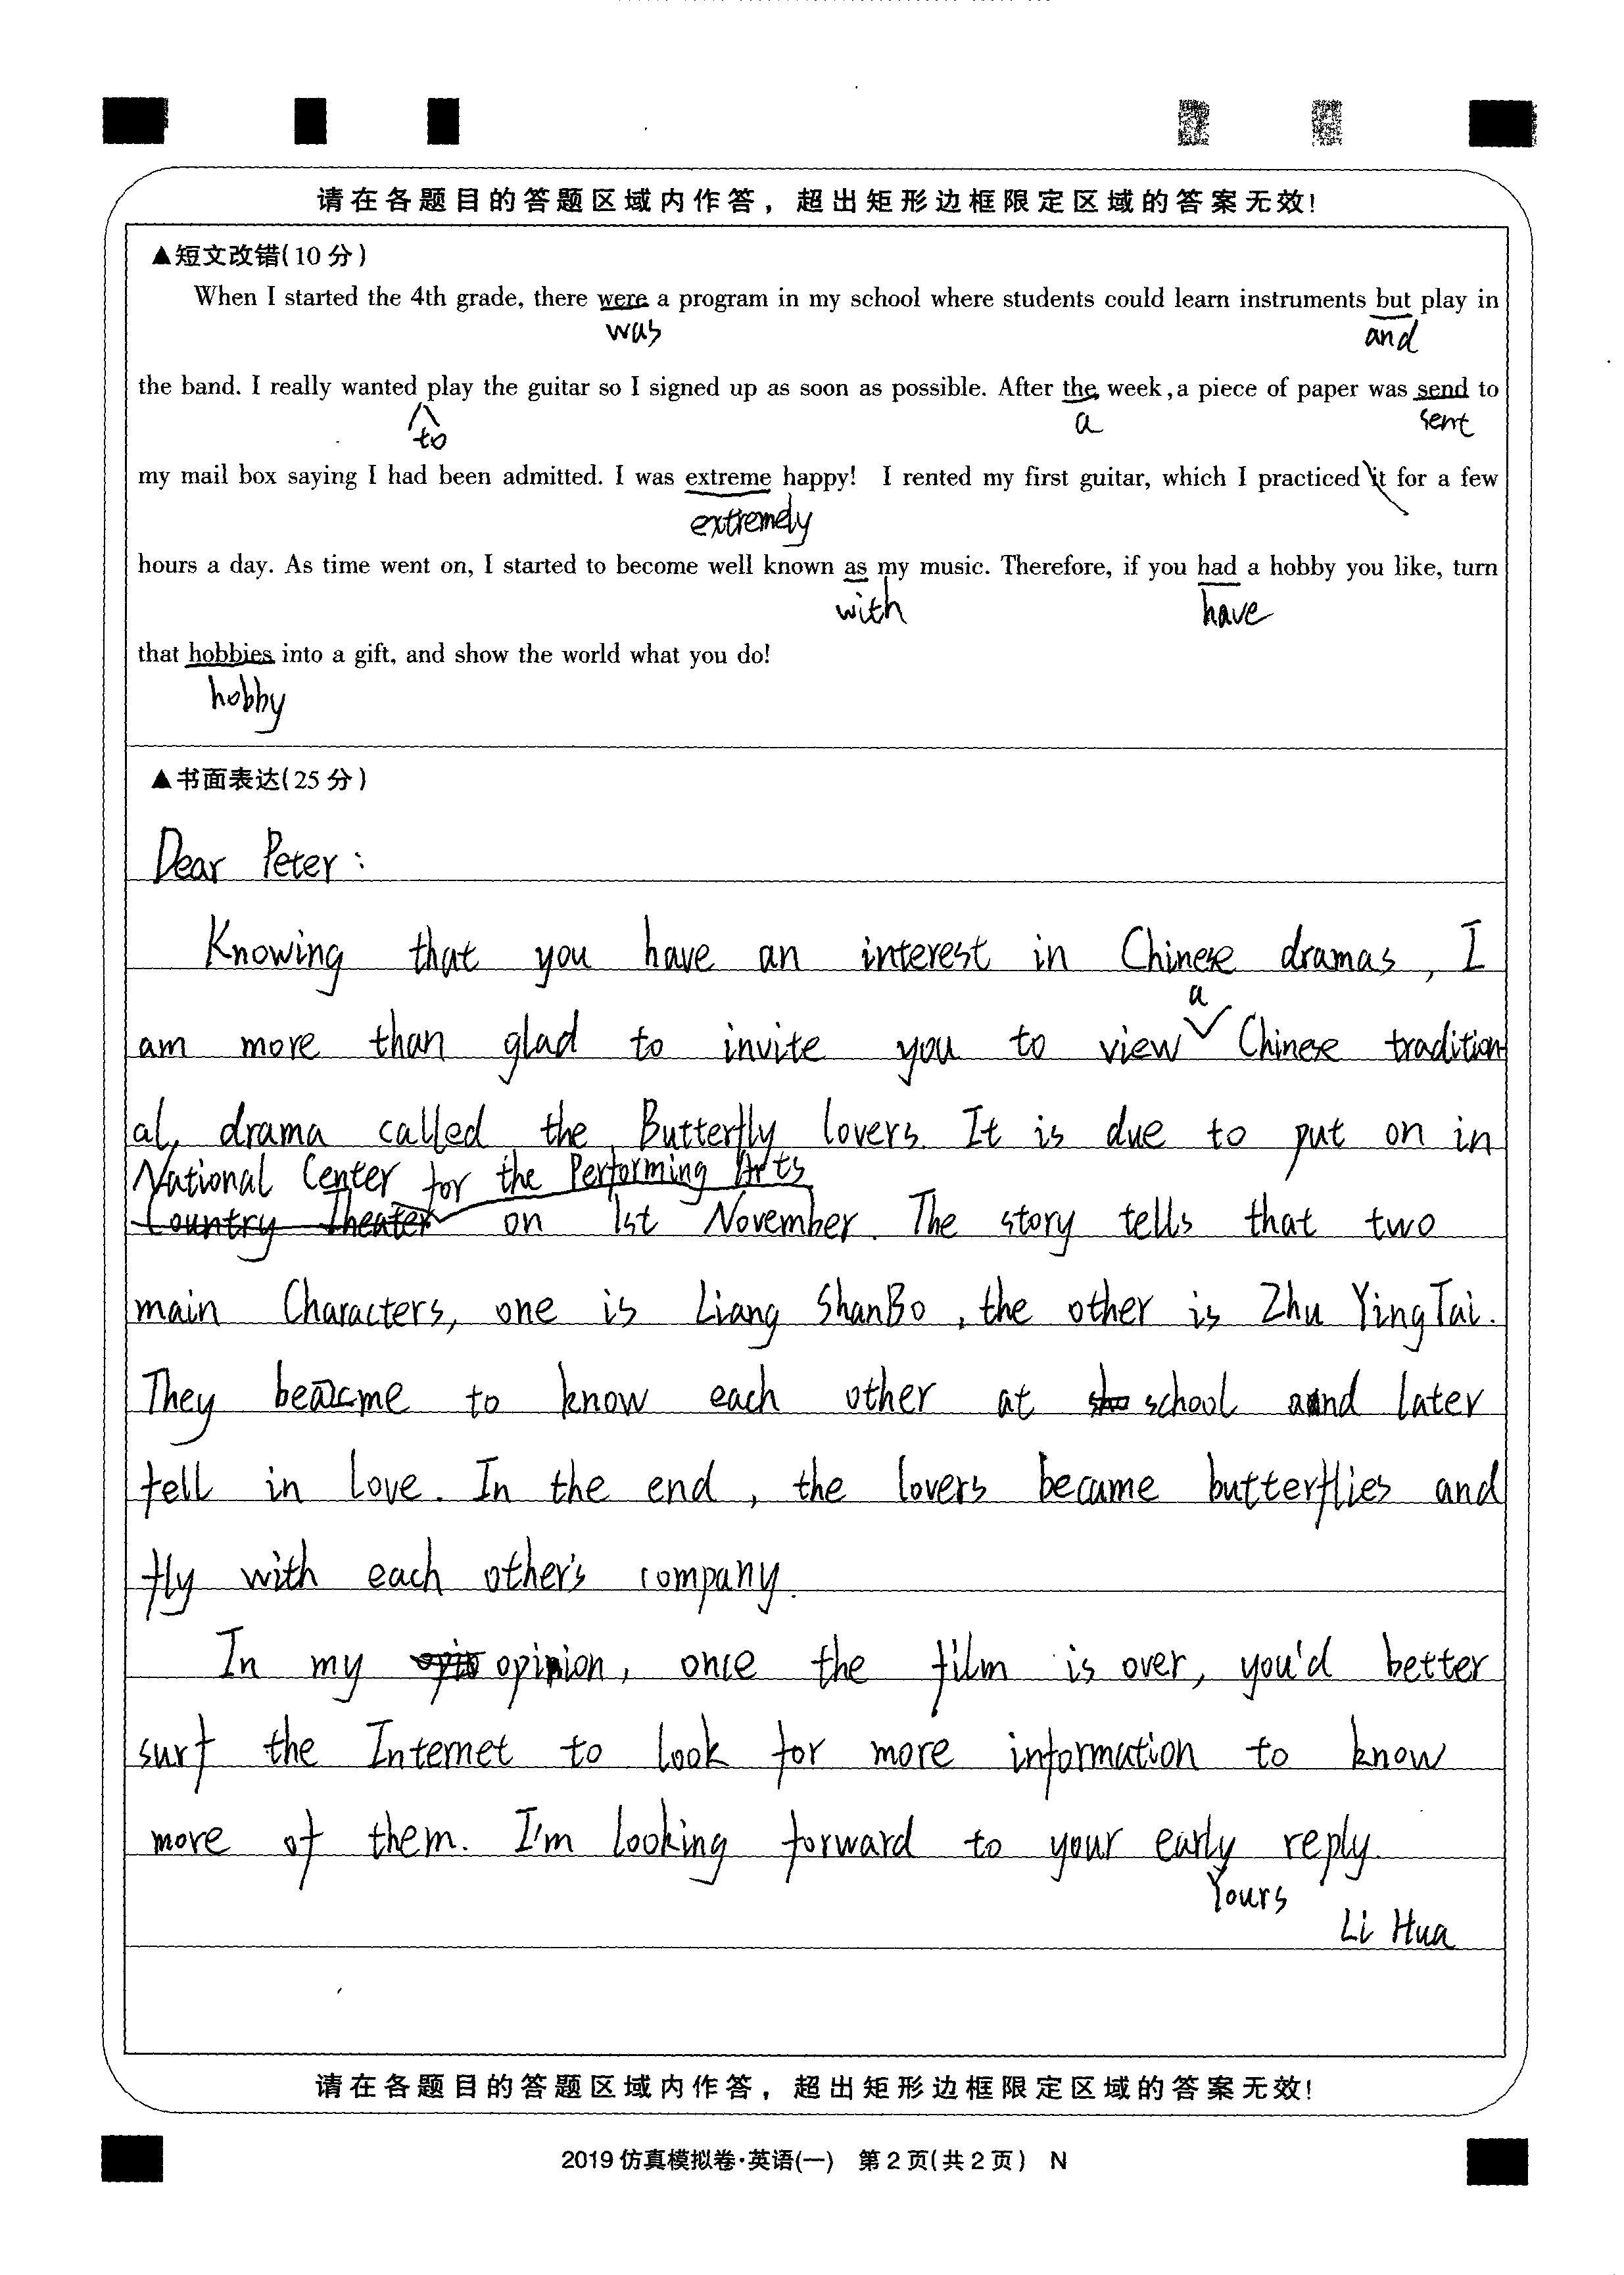 请在各题目的答题区域内作答，超出矩形边框限定区域的答案无效!
▲短文改错(10分)
When I started the 4th grade, there were a program in my school where students could learn instruments but play in
was and
the band. I really wanted play the guitar so I signed up as soon as possible. After the week, a piece of paper was send to
to a sent
my mail box saying I had been admitted. I was extreme happy! I rented my first guitar, which I practiced it for a few
extremely
hours a day. As time went on, I started to become well known as my music. Therefore, if you had a hobby you like, turn
with have
that hobbies into a gift, and show the world what you do!
hobby
▲书面表达(25分)
Dear Peter:
Knowing that you have an interest in Chinese dramas, I
a
am more than glad to invite you to view Chinese tradition
al, drama called the Butterfly lovers. It is due to put on in
National Center for the Performing Arts
Country Theater on 1st November. The story tells that two
main Characters, one is Liang ShanBo, the other is Zhu YingTai.
They became to know each other at school and later
fell in love. In the end, the lovers became butterflies and
fly with each other's company.
In my opinion, once the film is over, you'd better
surf the Internet to look for more information to know
more of them. I'm looking forward to your early reply.
Yours
Li Hua
请在各题目的答题区域内作答，超出矩形边框限定区域的答案无效!
2019仿真模拟卷·英语(一) 第2页(共2页) N